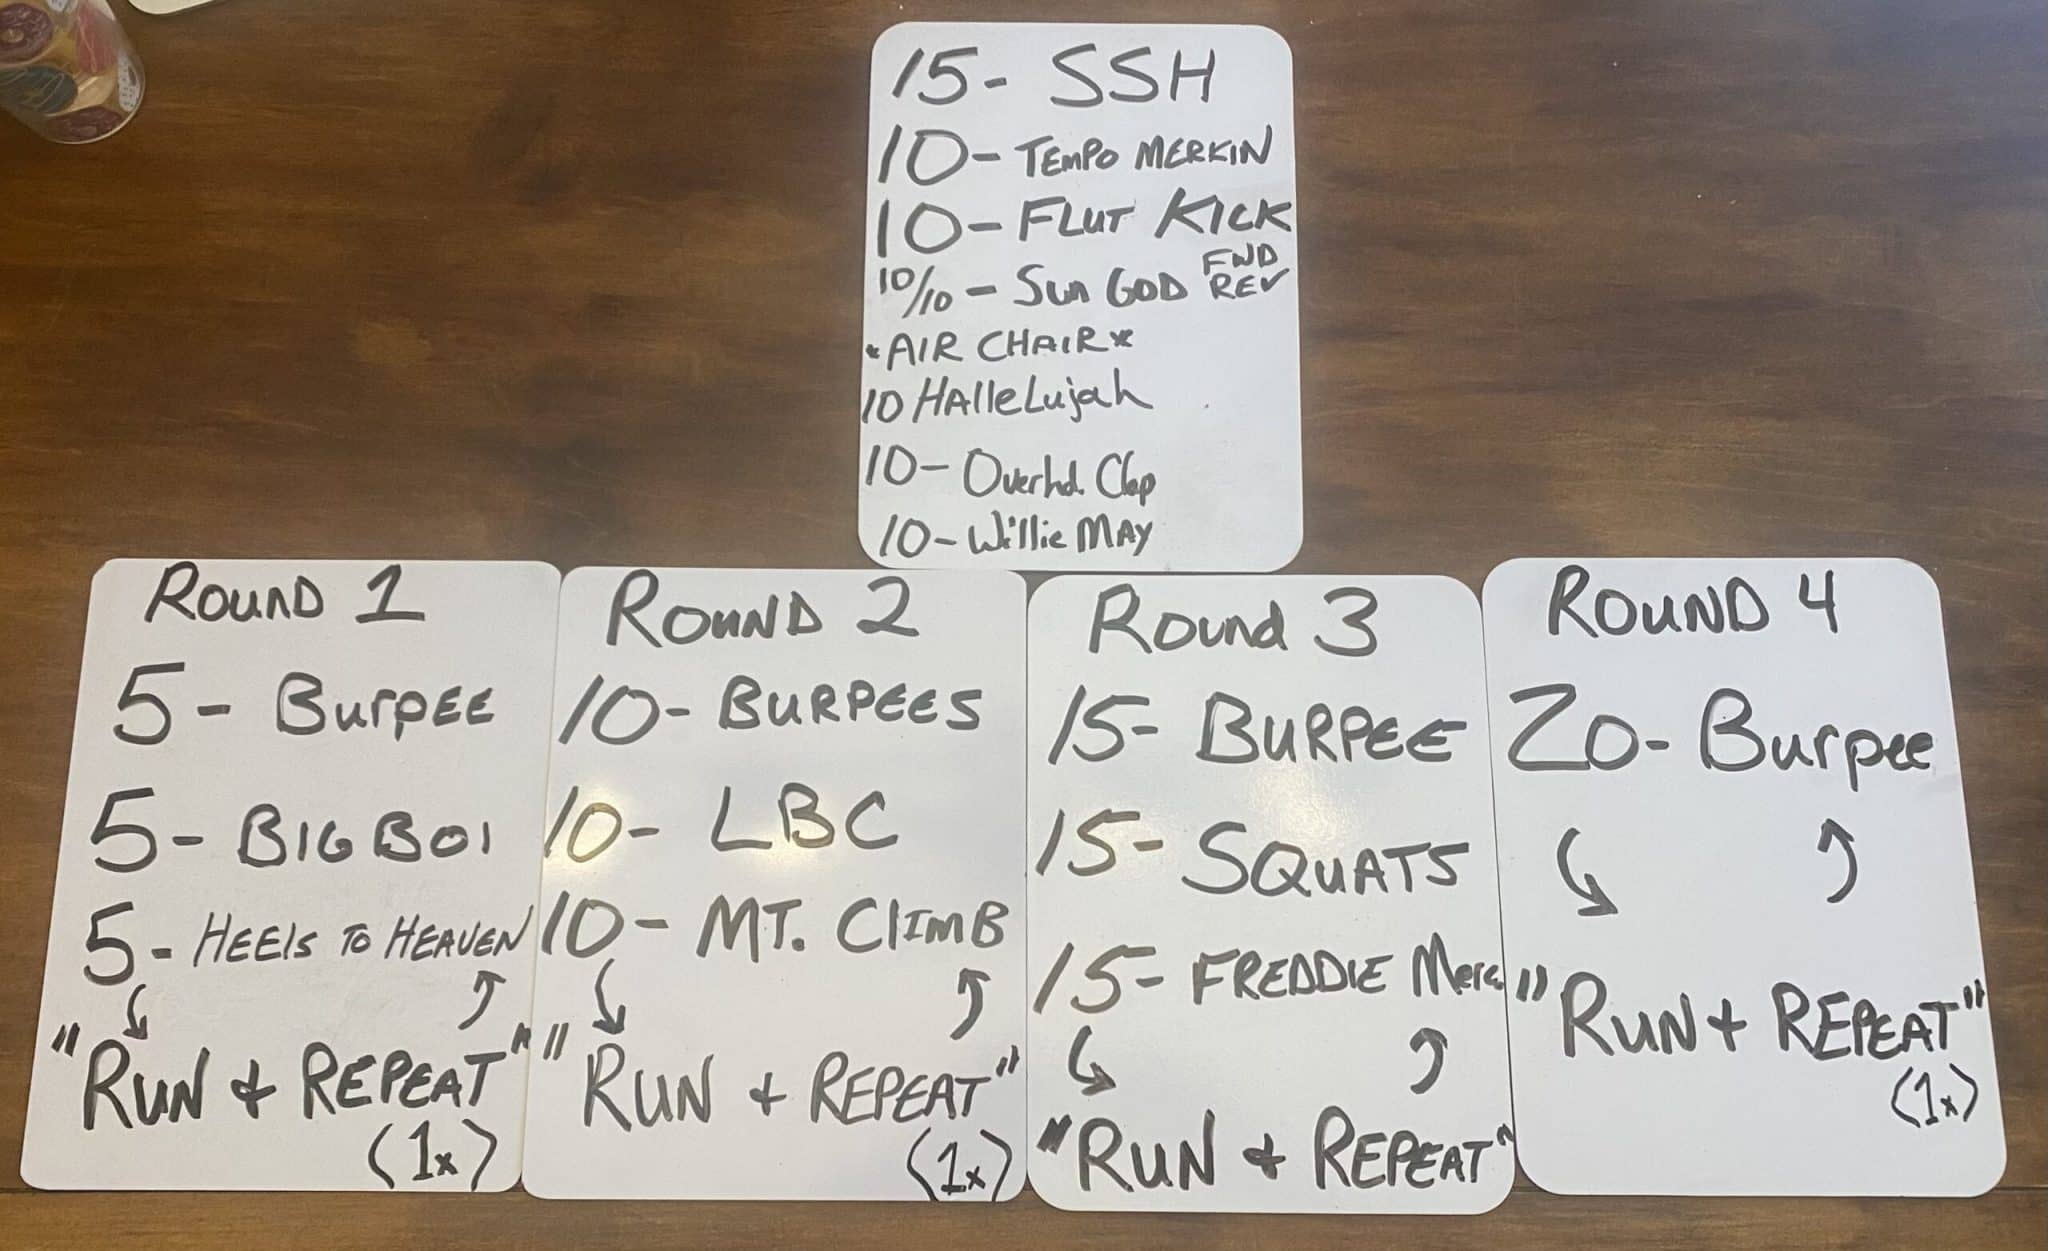 15- SSH
10- TEMPO MERKIN
10- FLUT KICK
10/10 - Sun GOD FWD REV
*AIR CHAIR*
10 HAlleLujah
10- Overhd. Clap
10- Willie MAY
ROUND 1
5- BurpEE
5- BIG BOI
5- HEEls TO HEAVEN
"RUN + REPEAT"
(1x)
ROUND 2
10- BURPEES
10- LBC
10- MT. ClIMB
"RUN + REPEAT"
(1x)
Round 3
15- BURPEE
15- SQUATS
15- FREDDIE Merc.
"RUN + REPEAT"
ROUND 4
20- Burpee
"RUN + REPEAT"
(1x)